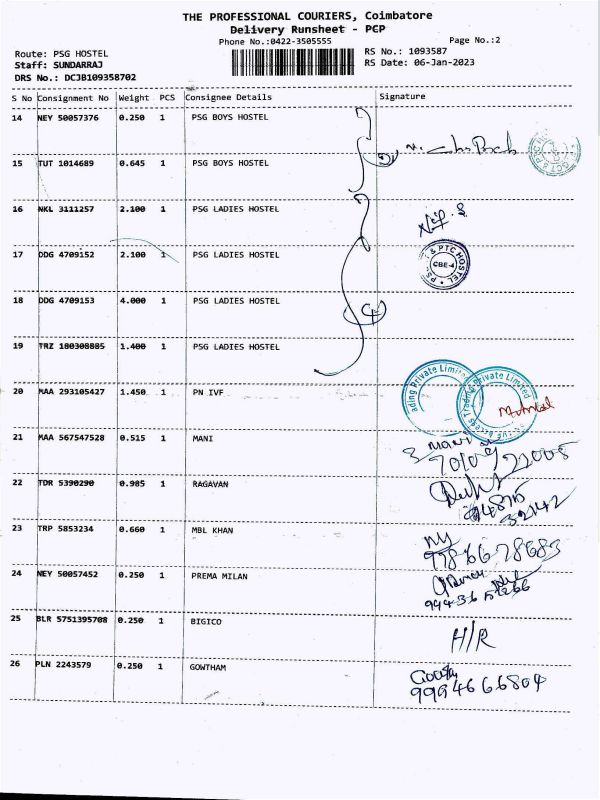 THE PROFESSIONAL COURIERS, Coimbatore
Delivery Runsheet - PCP
Phone No.:0422-3505555 Page No.:2
Route: PSG HOSTEL RS No.: 1093587
Staff: SUNDARRAJ RS Date: 06-Jan-2023
DRS No.: DCJB109358702
S No Consignment No Weight PCS Consignee Details Signature
14 NEY 50057376 0.250 1 PSG BOYS HOSTEL
15 TUT 1014689 0.645 1 PSG BOYS HOSTEL
16 NKL 3111257 2.100 1 PSG LADIES HOSTEL
17 DDG 4709152 2.100 1 PSG LADIES HOSTEL
& PTC HOSTEL
CBE-4
18 DDG 4709153 4.000 1 PSG LADIES HOSTEL
19 TRZ 100308805 1.400 1 PSG LADIES HOSTEL
ading Private Limited Private Limited
20 MAA 293105427 1.450 1 PN IVF
21 MAA 567547528 0.515 1 MANI
22 TDR 5390290 0.985 1 RAGAVAN
23 TRP 5853234 0.660 1 MBL KHAN
24 NEY 50057452 0.250 1 PREMA MILAN
25 BLR 5751395708 0.250 1 BIGICO H/R
26 PLN 2243579 0.250 1 GOWTHAM
9994666804